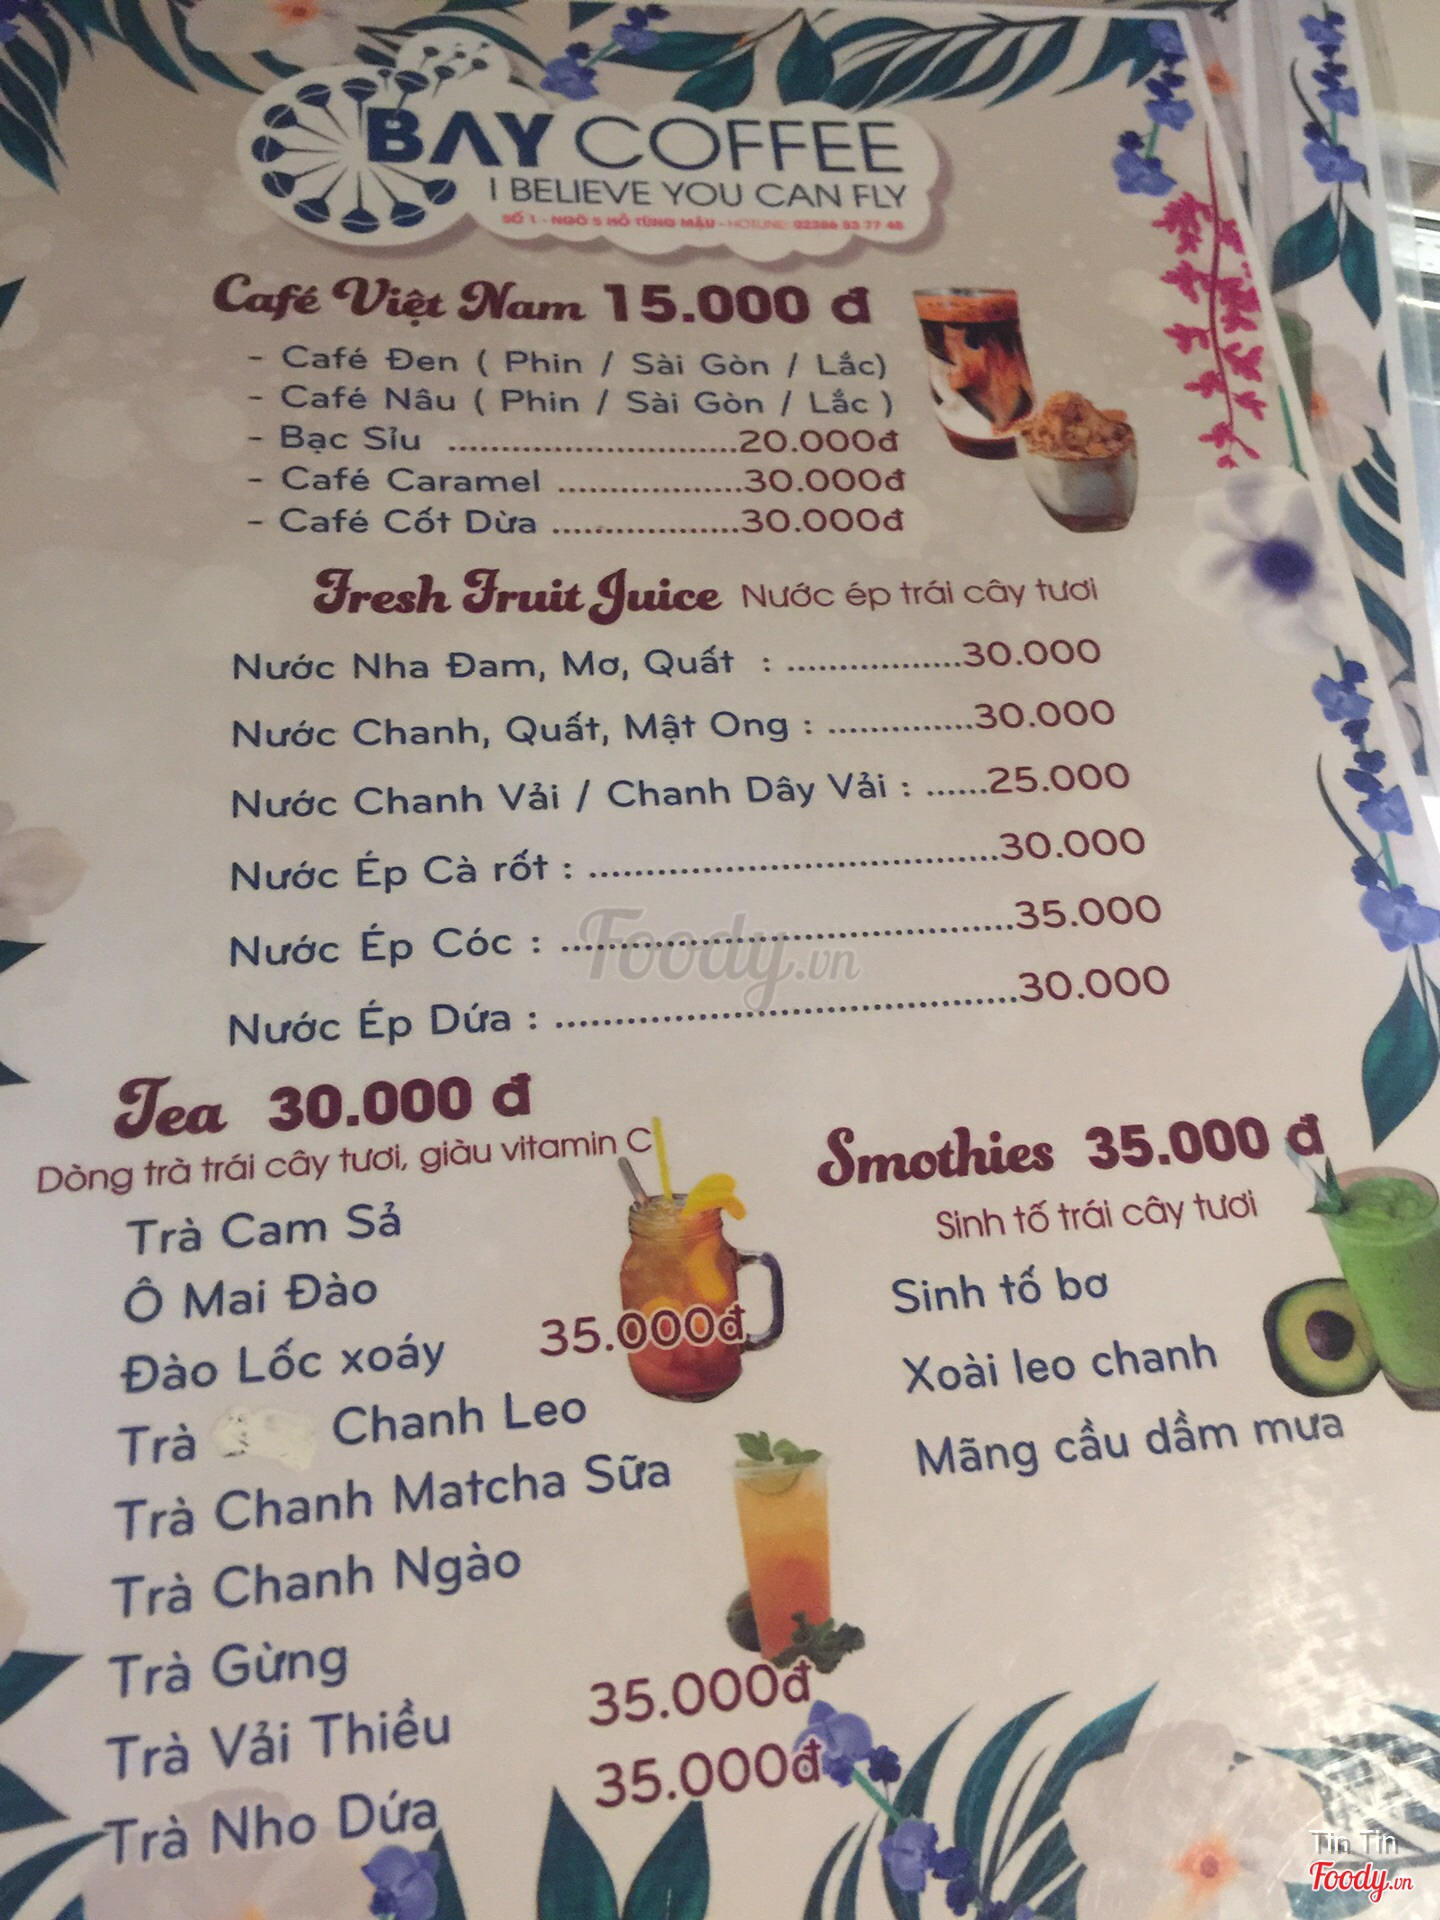 BAY COFFEE
I BELIEVE YOU CAN FLY
SỐ 1 - NGÕ 5 HỒ TÙNG MẬU - HOTLINE: 02386 53 77 48
Café Việt Nam 15.000 đ
- Café Đen ( Phin / Sài Gòn / Lắc)
- Café Nâu ( Phin / Sài Gòn / Lắc )
- Bạc Sỉu ............................20.000đ
- Café Caramel ...................30.000đ
- Café Cốt Dừa ...................30.000đ
Fresh Fruit Juice Nước ép trái cây tươi
Nước Nha Đam, Mơ, Quất : .................30.000
Nước Chanh, Quất, Mật Ong : ..............30.000
Nước Chanh Vải / Chanh Dây Vải : ......25.000
Nước Ép Cà rốt : .......................................30.000
Nước Ép Cóc : ...........................................35.000
Nước Ép Dứa : ............................................30.000
Foody.vn
Tea 30.000 đ
Dòng trà trái cây tươi, giàu vitamin C
Trà Cam Sả
Ô Mai Đào
Đào Lốc xoáy 35.000đ
Trà Chanh Leo
Trà Chanh Matcha Sữa
Trà Chanh Ngào
Trà Gừng
Trà Vải Thiều 35.000đ
Trà Nho Dứa 35.000đ
Smothies 35.000 đ
Sinh tố trái cây tươi
Sinh tố bơ
Xoài leo chanh
Mãng cầu dầm mưa
Tin Tin
Foody.vn